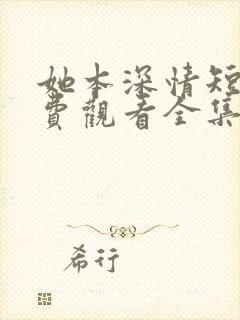 她本深情短
費觀看全集
希行